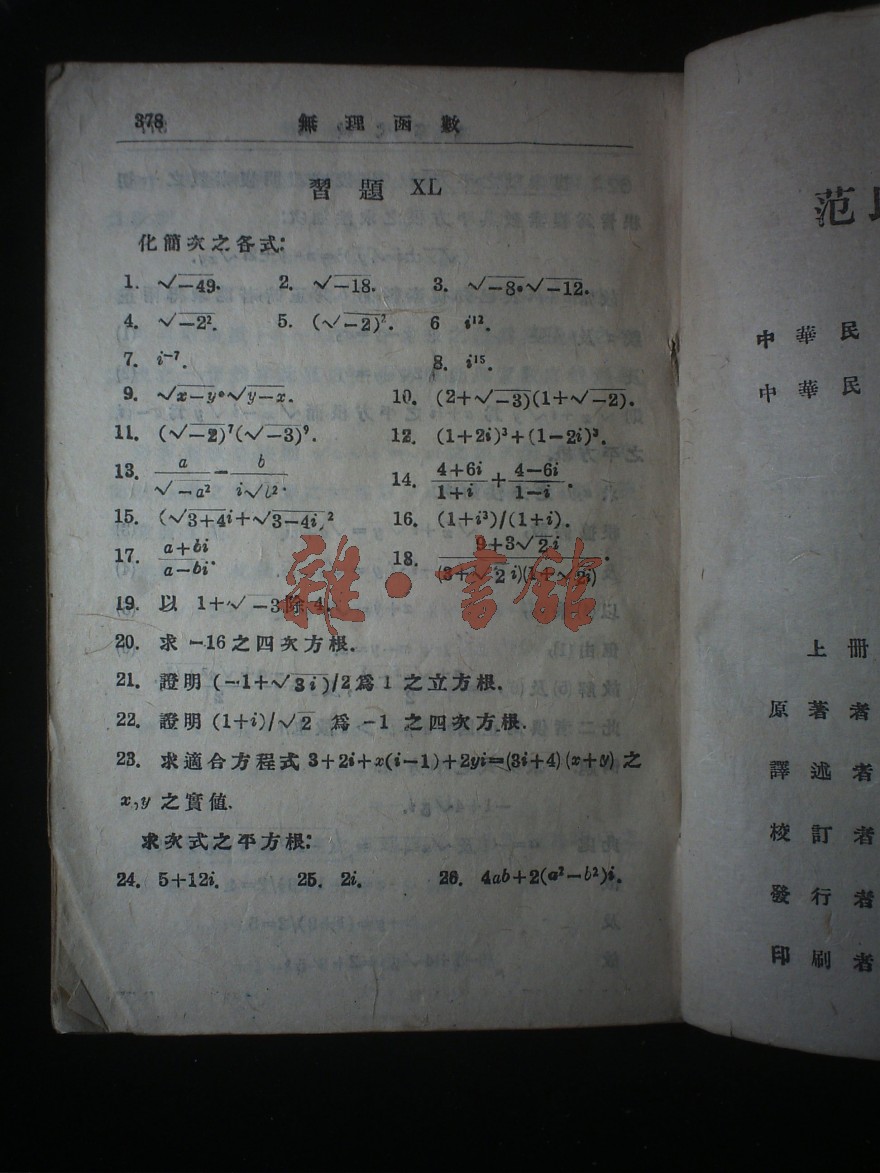 378 無理函數
習題 XL
化簡次之各式:
1. √−49. 2. √−18. 3. √−8·√−12.
4. √−2². 5. (√−2)². 6 i¹².
7. i⁻⁷. 8. i¹⁵.
9. √x−y·√y−x. 10. (2+√−3)(1+√−2).
11. (√−2)⁷(√−3)⁹. 12. (1+2i)³+(1−2i)³.
13. a/√−a² − b/i√b². 14. 4+6i/1+i + 4−6i/1−i.
15. (√3+4i+√3−4i)² 16. (1+i³)/(1+i).
17. a+bi/a−bi. 18. 9+3√2i/(3+√2i)(1+√2i).
19. 以 1+√−3除 4.
20. 求 −16之四次方根.
21. 證明 (−1+√3i)/2爲 1 之立方根.
22. 證明 (1+i)/√2 爲 −1 之四次方根.
23. 求適合方程式 3+2i+x(i−1)+2yi=(3i+4)(x+y) 之
x,y 之實值.
求次式之平方根:
24. 5+12i. 25. 2i. 26. 4ab+2(a²−b²)i.
雜·書館
范
中華民
中華民
上冊
原著者
譯述者
校訂者
發行者
印刷者